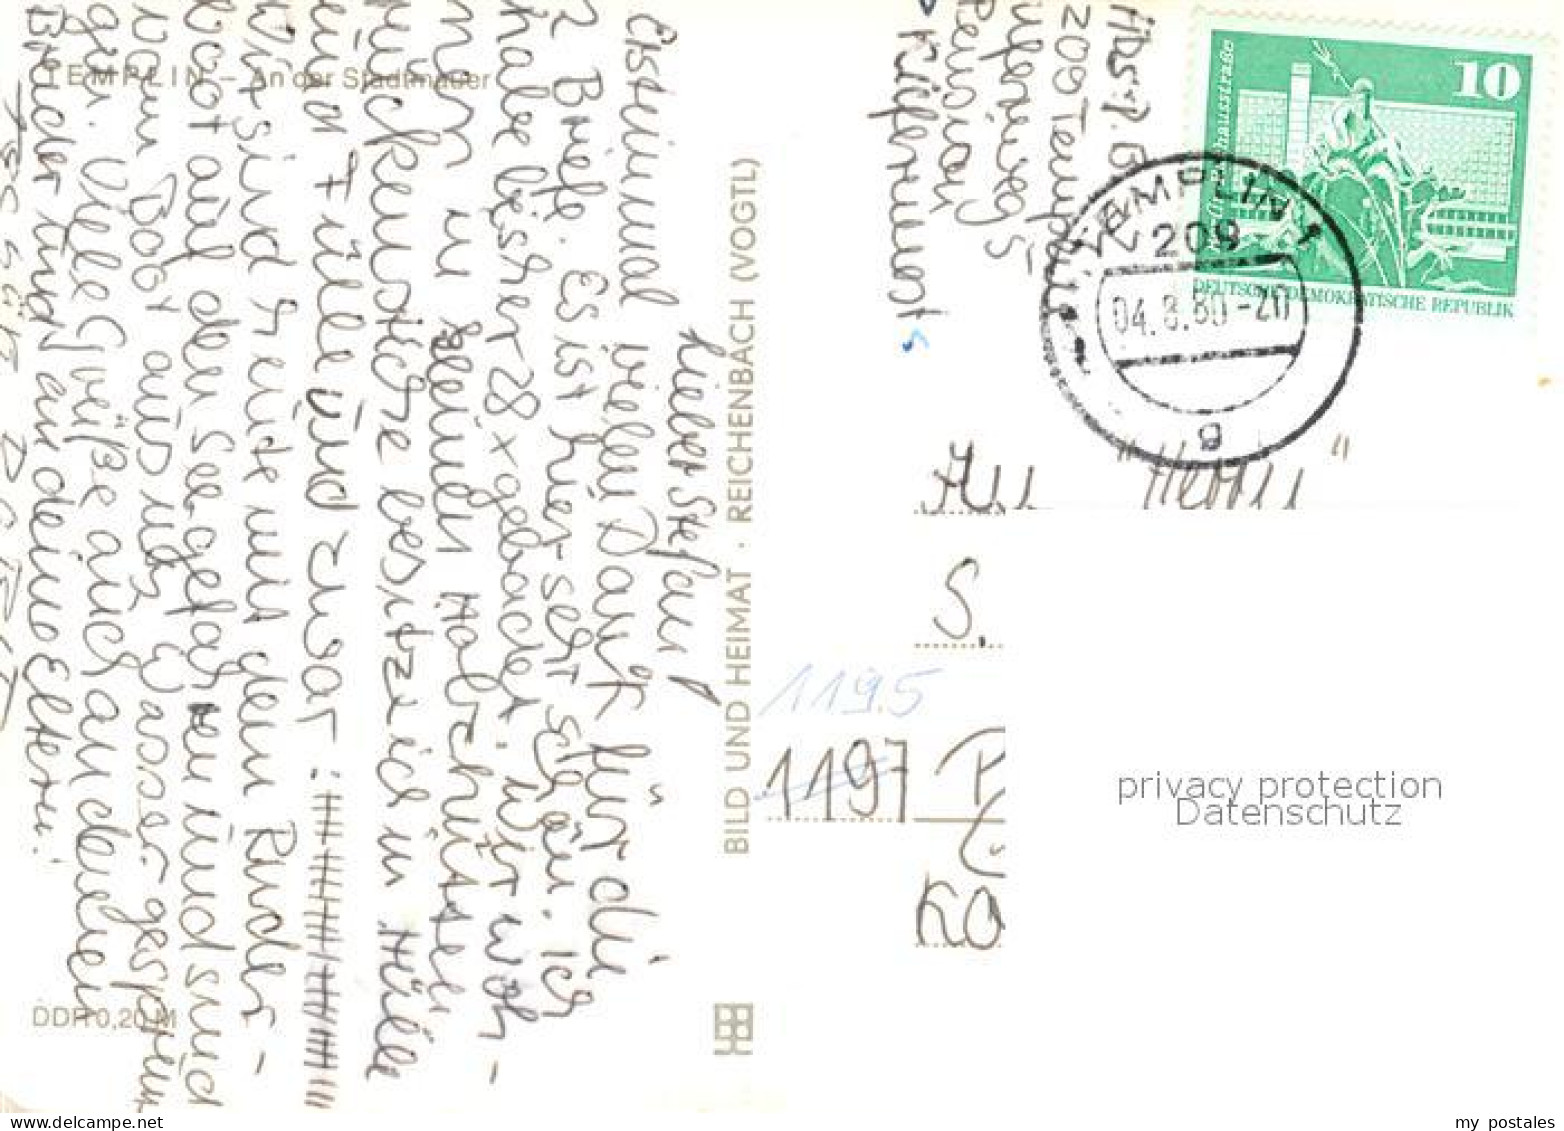 TEMPLIN – An der Stadtmauer
Lieber Stefan!
Erst einmal vielen Dank für die
2 Briefe. Es ist hier sehr schön. Ich
habe bisher 28x gebadet. Wir woh-
nen in kleinen Holzhütten
mückensichere besitze ich in Hülle
und Fülle und zwar: 
Wir sind heute mit dem Ruder-
boot auf den See gefahren und sind
vom Boot aus ins Wasser gesprun
gen. Viele Grüße auch an deinen
Bruder und an deine Eltern.
DDR 0,20 M
BILD UND HEIMAT · REICHENBACH (VOGTL)
Abs.: P. B
209 Templ
5
Kiefernnest
10
DEUTSCHE DEMOKRATISCHE REPUBLIK
TEMPLIN 1
209
04.8.80-20
g
S.
1195
1197 P
Ka
privacy protection
Datenschutz
my postales